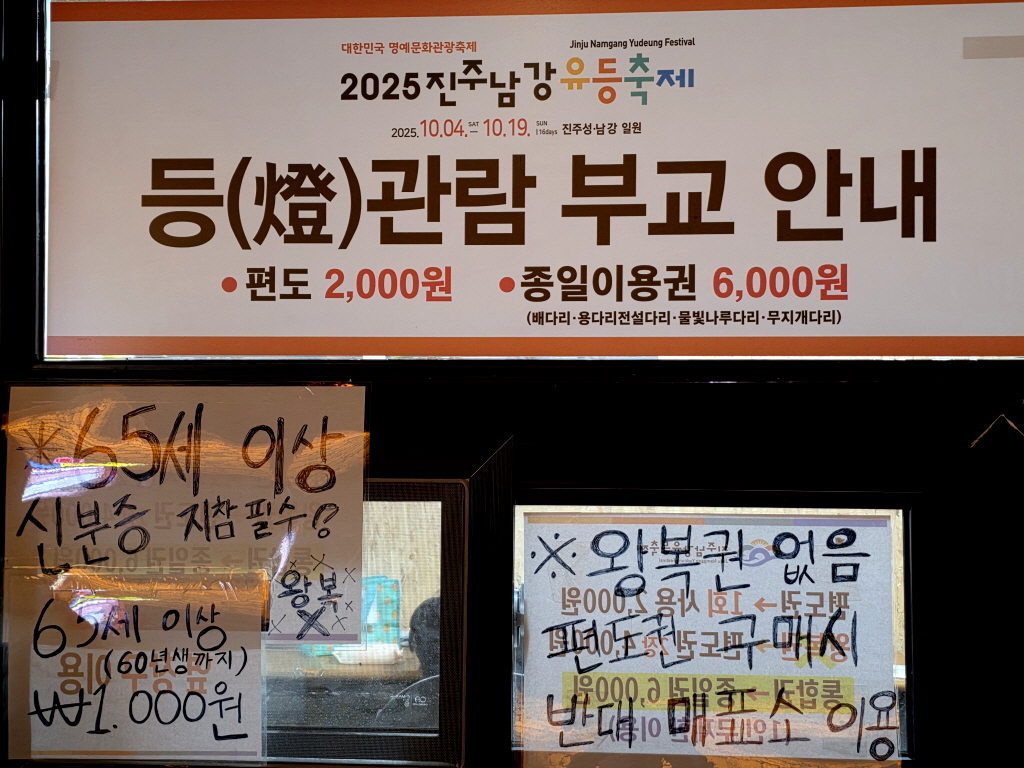 대한민국 명예문화관광축제
Jinju Namgang Yudeung Festival
2025 진주남강유등축제
2025. 10.04. SAT — 10.19. SUN | 16days 진주성·남강 일원
등(燈)관람 부교 안내
• 편도 2,000원 • 종일이용권 6,000원
(배다리·용다리전설다리·물빛나루다리·무지개다리)
※65세 이상
신부증 지참 필수?
왕복
X
65세 이상
(60년생까지)
₩1.000원
※ 왕복권 없음
편도권 구매시
반대 매표소 이용
편도권→ 1회 사용 2,000원
통합권→ 종일권 6,000원